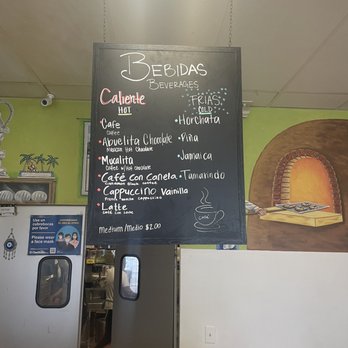 BEBIDAS
BEVERAGES
Caliente
HOT
• Cafe
Coffee
• Abuelita Chocolate
Mexican Hot Chocolate
• Mucalita
Coffee w/ Hot Chocolate
• Café con Canela
• Cappuccino Vainilla
French Vanilla Cappuccino
• Latte
Medium/Medio $2.00
FRIAS
COLD
• Horchata
• Piña
• Jamaica
• Tamarindo
Café
Use un
cubrebocas
por favor
Please wear
a face mask